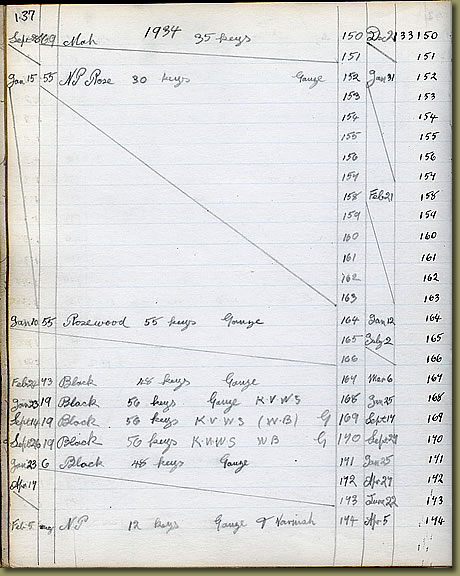 137
1934
Sept 26 69 Mah 35 keys 150 Dec 21 33 150
151 151
Jan 15 55 NP Rose 30 keys Gauze 152 Jan 31 152
153 153
154 154
155 155
156 156
157 157
158 Feb 21 158
159 159
160 160
161 161
162 162
163 163
Jan 10 55 Rosewood 55 keys Gauze 164 Jan 12 164
165 July 2 165
166 166
Feb 24 43 Black 48 keys Gauze 167 Mar 6 167
Jan 23 19 Black 56 keys Gauze K V W S 168 Jan 25 168
Sept 14 19 Black 56 keys K V W S (W B) G 169 Sept 17 169
Sept 26 19 Black 56 keys K V W S W B G 170 Sept 29 170
Jan 23 6 Black 48 keys Gauze 171 Jan 25 171
Apr 17 172 Apr 27 172
173 June 22 173
Feb 5 NP 12 keys Gauze & Varnish 174 Apr 5 174